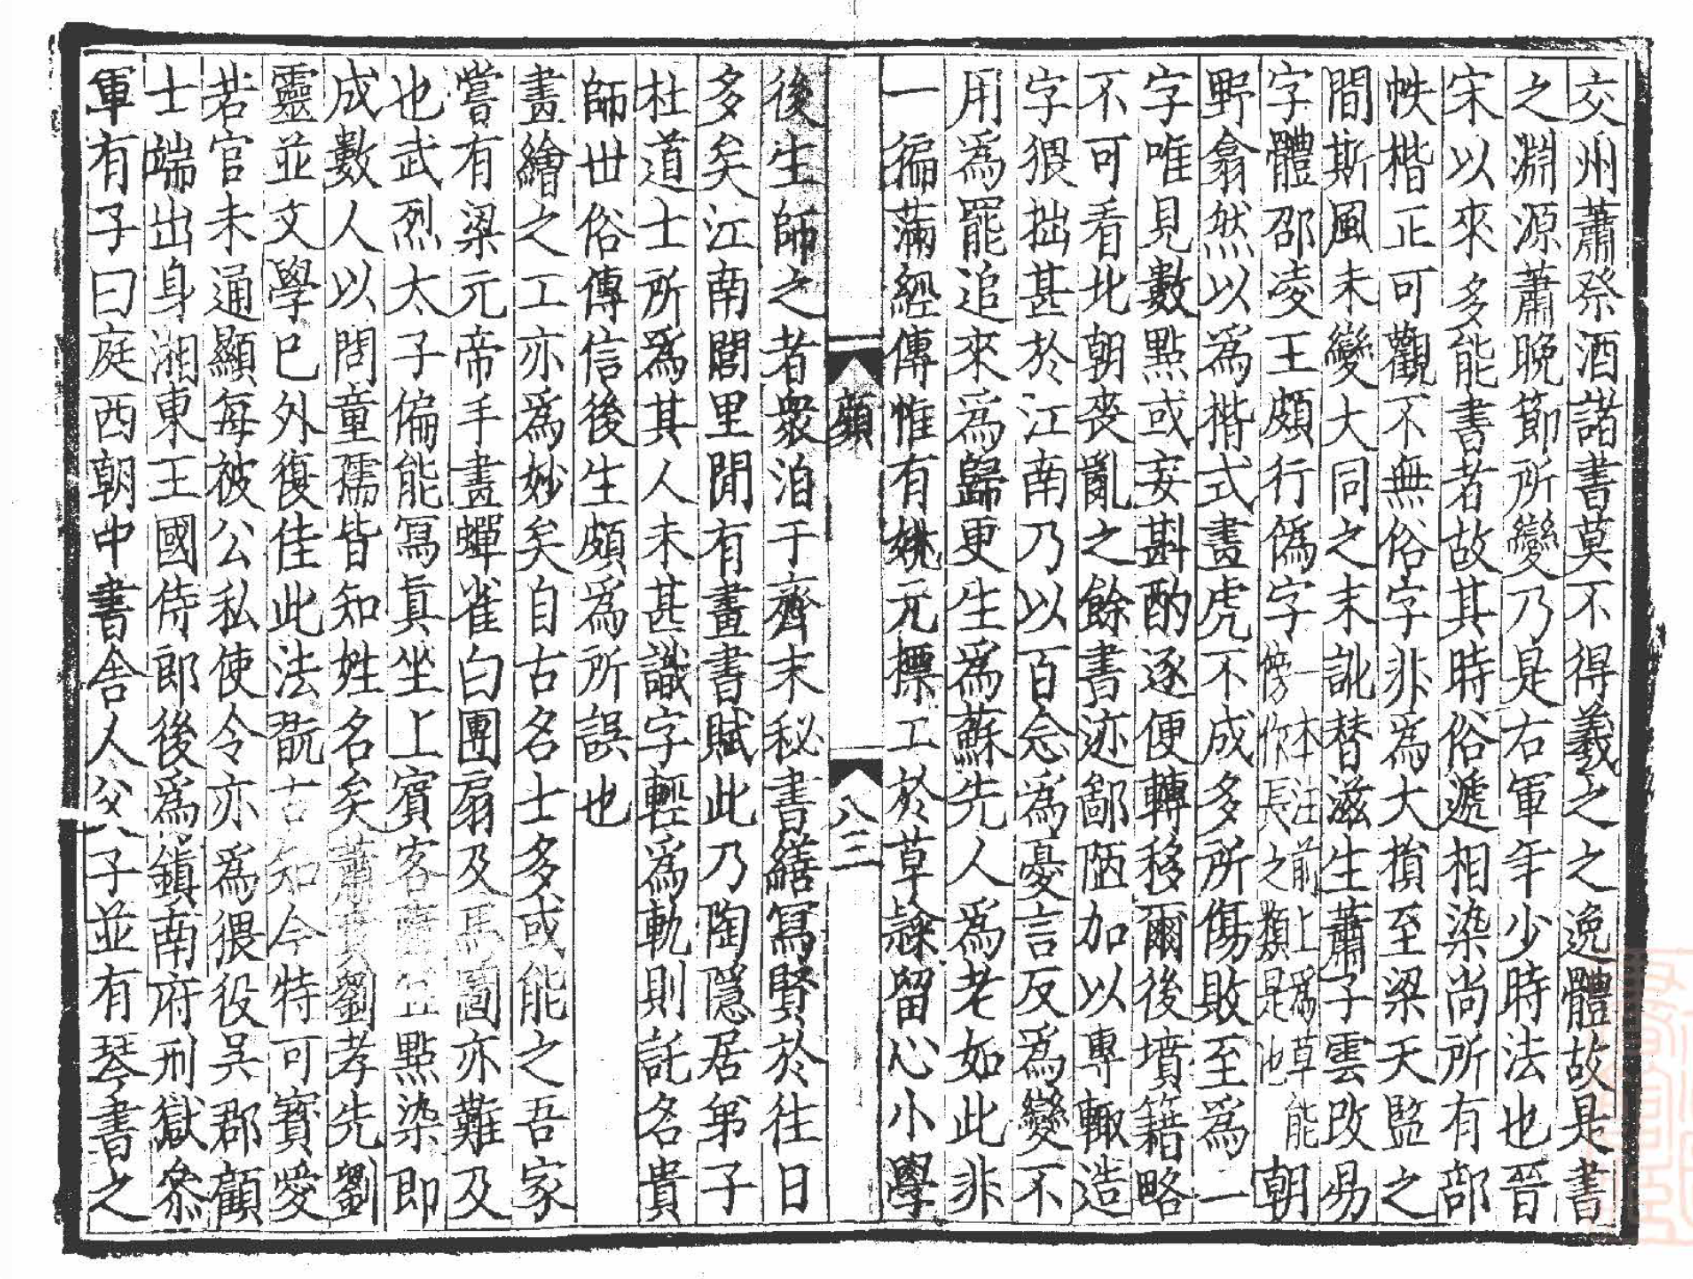 交州蕭祭酒諸書莫不得羲之之逸體故是書
之淵源蕭晚節所變乃是右軍年少時法也晉
宋以來多能書者故其時俗遞相染尚所有部
帙楷正可觀不無俗字非為大損至梁天監之
間斯風未變大同之末訛替滋生蕭子雲改易
字體邵凌王頗行僞字一本注前上為草能傍作長之類是也朝
野翕然以為楷式畫虎不成多所傷敗至為一
字唯見數點或妄斟酌逐便轉移爾後墳籍略
不可看北朝喪亂之餘書迹鄙陋加以專輒造
字猥拙甚於江南乃以百念為憂言反為變不
用為罷追來為歸更生為蘇先人為老如此非
一徧滿經傳惟有姚元摽工於草隷留心小學
顔
八三
後生師之者衆洎于齊末秘書繕寫賢於往日
多矣江南閭里閒有畫書賦此乃陶隱居弟子
杜道士所為其人未甚識字輕為軌則託名貴
師世俗傳信後生頗為所誤也
畫繪之工亦為妙矣自古名士多或能之吾家
嘗有梁元帝手畫蟬雀白團扇及馬圖亦難及
也武烈太子偏能寫眞坐上賓客隨宜點染即
成數人以問童孺皆知姓名矣蕭賁劉孝先劉
靈並文學已外復佳此法翫古知今特可寶愛
若官未通顯每被公私使令亦為猥役吳郡顧
士端出身湘東王國侍郎後為鎮南府刑獄參
軍有子曰庭西朝中書舍人父子並有琴書之